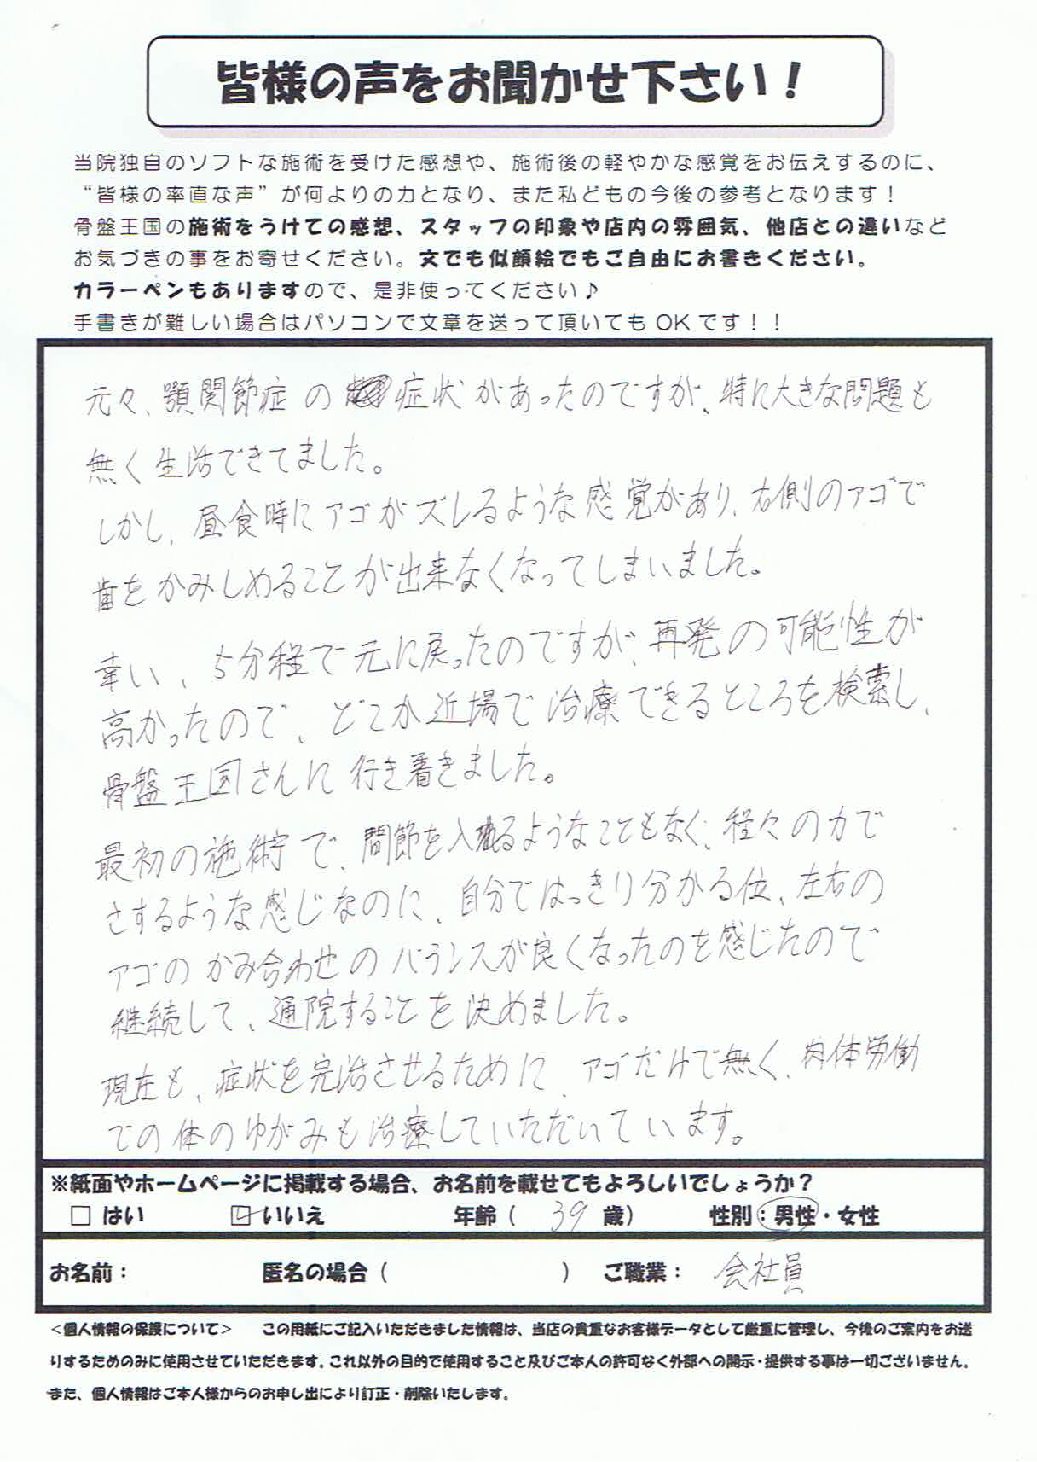 皆様の声をお聞かせ下さい！
当院独自のソフトな施術を受けた感想や、施術後の軽やかな感覚をお伝えするのに、
“皆様の率直な声”が何よりの力となり、また私どもの今後の参考となります！
骨盤王国の施術をうけての感想、スタッフの印象や店内の雰囲気、他店との違いなど
お気づきの事をお寄せください。文でも似顔絵でもご自由にお書きください。
カラーペンもありますので、是非使ってください♪
手書きが難しい場合はパソコンで文章を送って頂いてもOKです！！
元々、顎関節症の症状があったのですが、特に大きな問題も
無く生活できてました。
しかし、昼食時にアゴがズレるような感覚があり、右側のアゴで
歯をかみしめることが出来なくなってしまいました。
幸い、5分程で元に戻ったのですが、再発の可能性が
高かったので、どこか近場で治療できるところを検索し、
骨盤王国さんに行き着きました。
最初の施術で、間節を入れるようなこともなく、程々の力で
さするような感じなのに、自分ではっきり分かる位、左右の
アゴのかみ合わせのバランスが良くなったのを感じたので
継続して、通院することを決めました。
現在も、症状を完治させるために、アゴだけで無く、肉体労働
での体のゆがみも治療していただいています。
※紙面やホームページに掲載する場合、お名前を載せてもよろしいでしょうか？
□ はい ☑ いいえ 年齢（ 39 歳） 性別：男性・女性
お名前： 匿名の場合（ ） ご職業： 会社員
＜個人情報の保護について＞ この用紙にご記入いただきました情報は、当店の貴重なお客様データとして厳重に管理し、今後のご案内をお送
りするためのみに使用させていただきます。これ以外の目的で使用すること及びご本人の許可なく外部への開示・提供する事は一切ございません。
また、個人情報はご本人様からのお申し出により訂正・削除いたします。